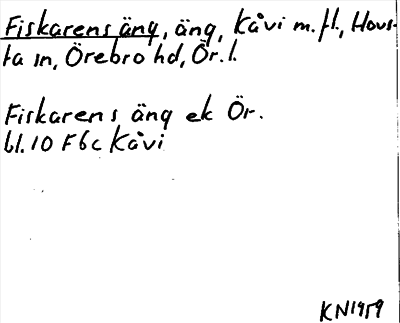 Fiskarens äng, äng, Kåvi m.fl., Hovs-
ta sn, Örebro hd, Ör.l.
Fiskarens äng ek Ör.
bl. 10 F6c Kåvi
KN 1959